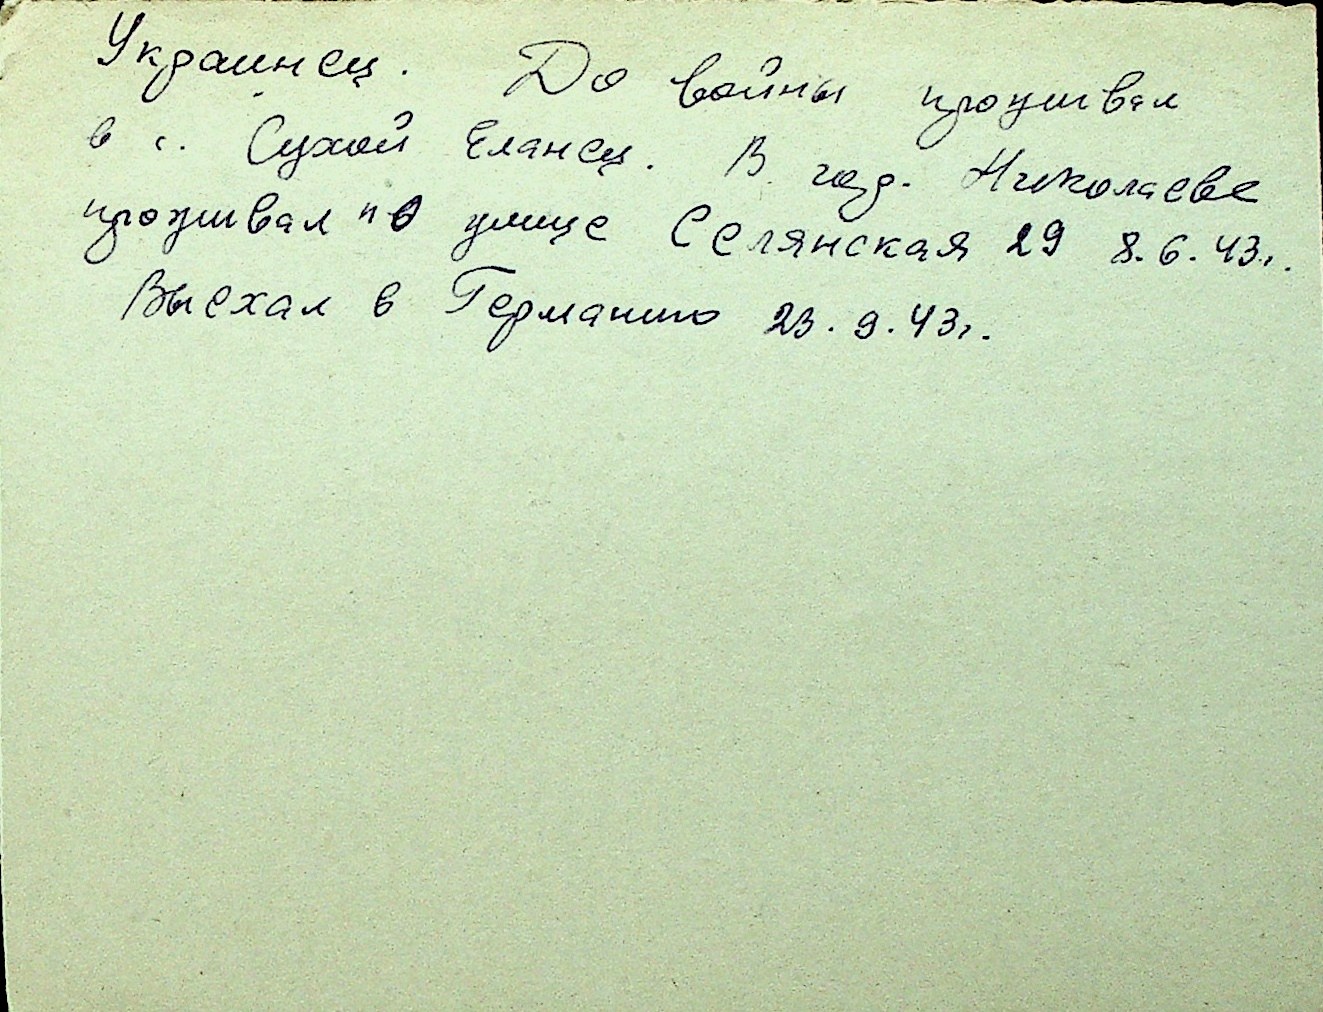 Украинец. До войны проживал
в с. Сухой Еланец. В гор. Николаеве
проживал по улице Селянская 29 8.6.43г.
Выехал в Германию 23.9.43г.